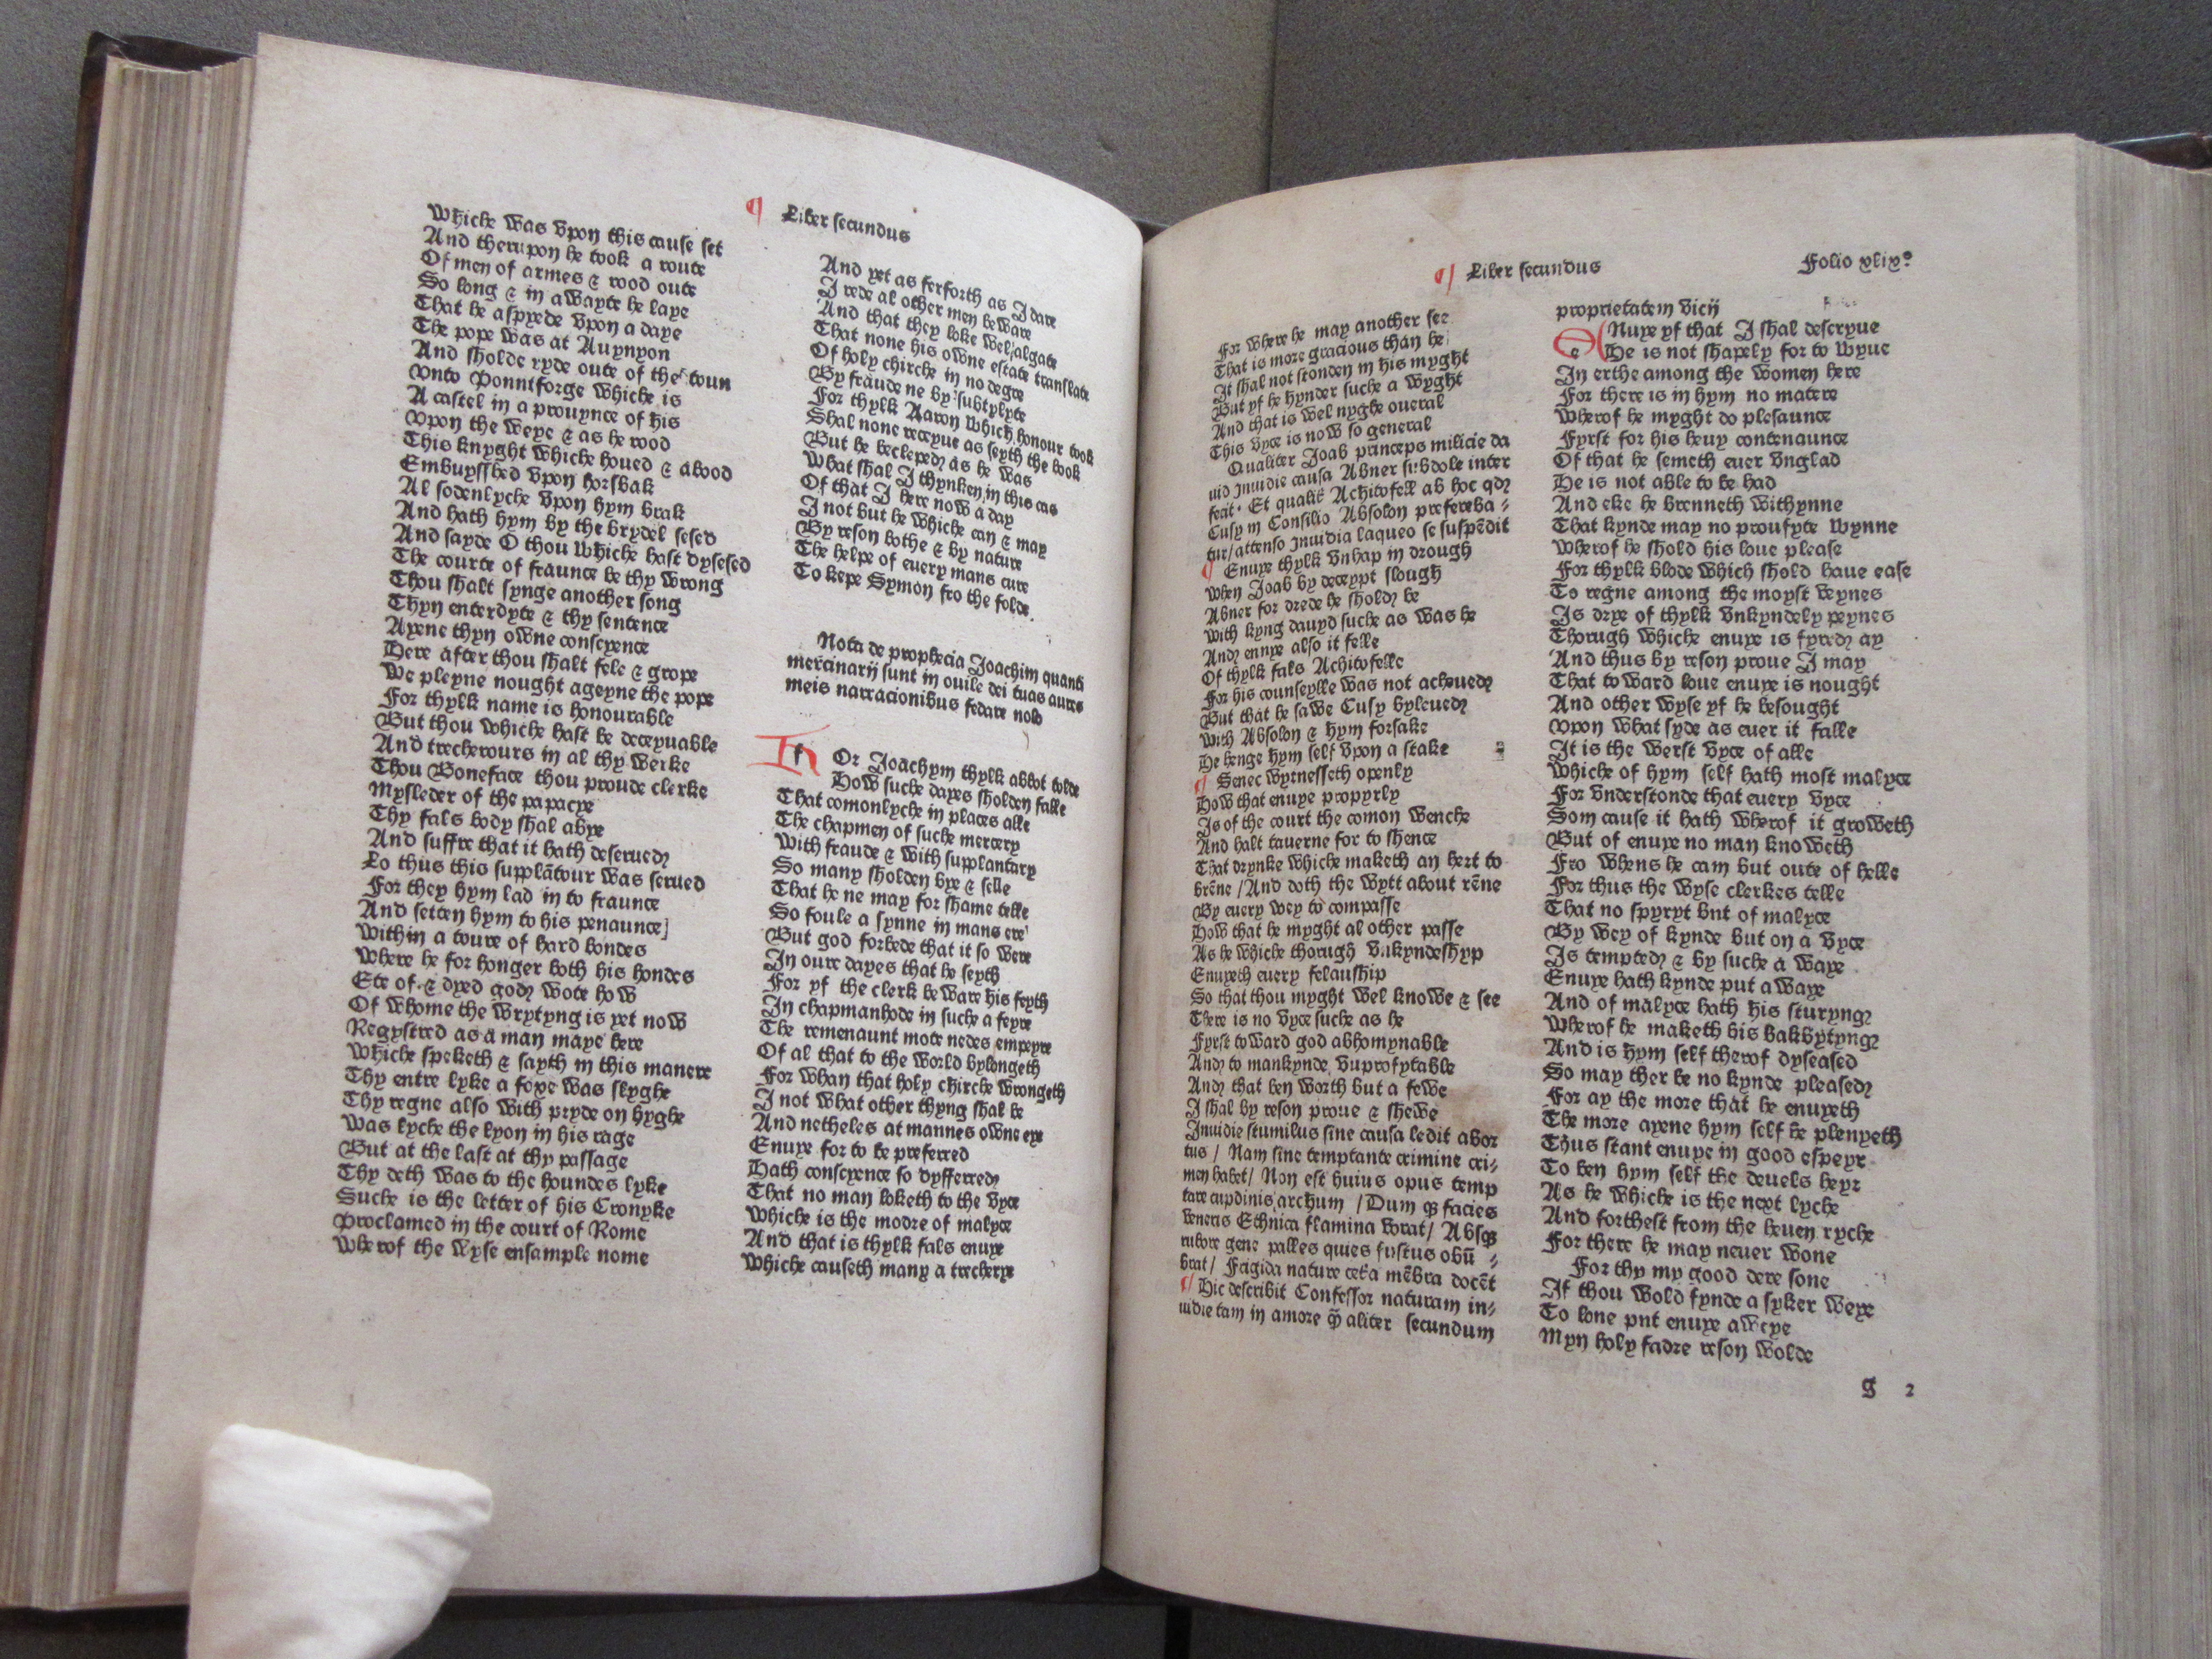 ¶ Liber secundus
Whiche was vpon this cause set
And therupon he took a route
Of men of armes & rood oute
So long & in awayte he laye
That he aspyede vpon a daye
The pope was at Auynyon
And sholde ryde oute of the toun
Vnto Pontforge whiche is
A castel in a prouynce of his
Vpon the weye & as he rood
This knyght whiche houed & abood
Embuysshed vpon horsbak
Al sodenlyche vpon hym brak
And hath hym by the brydel sesed
And sayde O thou whiche hast dysesed
The courte of fraunce be thy wrong
Thou shalt synge another song
Thyn enterdyte & thy sentence
Ayene thyn owne conscyence
Here after thou shalt fele & grope
We pleyne nought ageyne the pope
For thylk name is honourable
But thou whiche hast be deceyuable
And trecherours in al thy werke
Thou Boneface thou proude clerke
Mysleder of the papacye
Thy fals body shal abye
And suffre that it hath deserued
Lo thus this supplātour was serued
For they hym lad in to fraunce
And setten hym to his penaunce
Within a toure of hard bondes
Where he for honger both his hondes
Ete of & dyed god wote how
Of whome the wrytyng is yet now
Regystred as a man maye here
Whiche speketh & sayth in this manere
Thy entre lyke a foxe was slyghe
Thy regne also with pryde on hyghe
Was lyche the lyon in his rage
But at the last at thy passage
Thy deth was to the houndes lyke
Suche is the letter of his Cronyke
Proclamed in the court of Rome
Wherof the wyse ensample nome
And yet as ferforth as I dare
I rede al other men beware
And that they loke wel algate
That none his owne estate translate
Of holy chirche in no degre
By fraude ne by subtylyte
For thylk Aaron which honour took
Shal none receyue as seyth the book
But he becleped as he was
What shal I thynken in this cas
Of that I here now a day
I not but he whiche can & may
By reson bothe & by nature
The helpe of euery mans cure
To kepe Symon fro the folde
Nota de prophecia Joachim quanti
mercinarij sunt in ouile dei tuas aures
meis narracionibus fedare nolo
For Joachym thylk abbot tolde
How suche dayes sholden falle
That comonlyche in places alle
The chapmen of suche mercery
With fraude & with supplantary
So many sholden bye & selle
That he ne may for shame telle
So foule a synne in mans ere
But god forbede that it so were
In oure dayes that he seyth
For yf the clerk beware his feyth
In chapmanhode in suche a feyre
The remenaunt mote nedes empeyre
Of al that to the world bylongeth
For whan that holy chirche wrongeth
I not what other thyng shal be
And netheles at mannes owne eye
Enuye for to be preferred
Hath conscyence so dyfferred
That no man loketh to the vyce
Whiche is the modre of malyce
And that is thylk fals enuye
Whiche causeth many a trecherye
¶ Liber secundus
Folio xlix°
For where he may another see
That is more gracious than he
It shal not stonden in his myght
But yf he hynder suche a wyght
And that is wel nyghe oueral
This vyce is now so general
Qualiter Joab princeps milicie da
uid Inuidie causa Abner subdole inter
fecit. Et qualit̄ Achitofell ab hoc qd
Cusy in Consilio Absolon prefereba-
tur/ attenso Inuidia laqueo se suspēdit
¶ Enuye thylk vnhap in drough
When Joab by deceypt slough
Abner for drede he shold be
With kyng dauyd suche as was he
And enuye also it felle
Of thylk fals Achitofelle
For his counseylle was not acheued
But that he sawe Cusy byleued
With Absolon & hym forsake
He henge hym self vpon a stake
¶ Senec wytnesseth openly
How that enuye propyrly
Is of the court the comon wenche
And halt tauerne for to shence
That drynke whiche maketh an hert to
brēne / And doth the wytt about rēne
By euery wey to compasse
How that he myght al other passe
As he whiche thorugh vnkyndeshyp
Enuyeth euery felauship
So that thou myght wel knowe & see
There is no vyce suche as he
Fyrst toward god abhomynable
And to mankynde vnprofytable
And that ben worth but a fewe
I shal by reson proue & shewe
Inuidie stumilus sine causa ledit abor
tus / Nam sine temptante crimine cri-
men habet/ Non est huius opus temp
tare cupdinis archum / Dum q3 facies
veneris Ethnica flamina vorat/ Absq3
rubore gene palles quies fustus obū -
brat/ Frigida nature cet̄a mēbra docēt
¶ Hic describit Confessor naturam in-
uidie tam in amore q̄ aliter secundum
proprietatem vicij
eNuye yf that I shal descryue
He is not shapely for to wyue
In erthe among the women here
For there is in hym no matere
Wherof he myght do plesaunce
Fyrst for his heuy contenaunce
Of that he semeth euer vnglad
He is not able to be had
And eke he brenneth withynne
That kynde may no proufyte wynne
Wherof he shold his loue please
For thylk blode which shold haue ease
To regne among the moyst veynes
Is drye of thylk vnkyndely peynes
Thorugh whiche enuye is fyred ay
And thus by reson proue I may
That toward loue enuye is nought
And other wyse yf he besought
Vpon what syde as euer it falle
It is the werst vyce of alle
Whiche of hym self hath most malyce
For vnderstonde that euery vyce
Som cause it hath wherof it groweth
But of enuye no man knoweth
Fro whens he cam but oute of helle
For thus the wyse clerkes telle
That no spyryt bnt of malyce
By wey of kynde but on a vyce
Is tempted & by suche a waye
Enuye hath kynde put a waye
And of malyce hath his sturyng
Wherof he maketh his bakbytyng
And is hym self therof dyseased
So may ther be no kynde pleased
For ay the more that he enuyeth
The more ayene hym self he plenyeth
Thus stant enuye in good espeyr
To ben hym self the deuels heyr
As he whiche is the next lyche
And forthest from the heuen ryche
For there he may neuer wone
For thy my good dere sone
If thou wold fynde a syker weye
To lone pnt enuye aweye
Myn holy fadre reson wolde
g 2